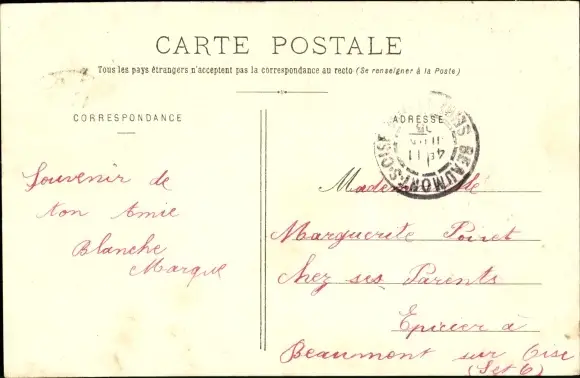 CARTE POSTALE
Tous les pays étrangers n'acceptent pas la correspondance au recto (Se renseigner à la Poste)
CORRESPONDANCE
ADRESSE
Souvenir de
ton Amie
Blanche
Marque
Marguerite Poiret
chez ses Parents
Epicier à
Beaumont sur Oise
(Set O)
BEAUMONT-S-OISE